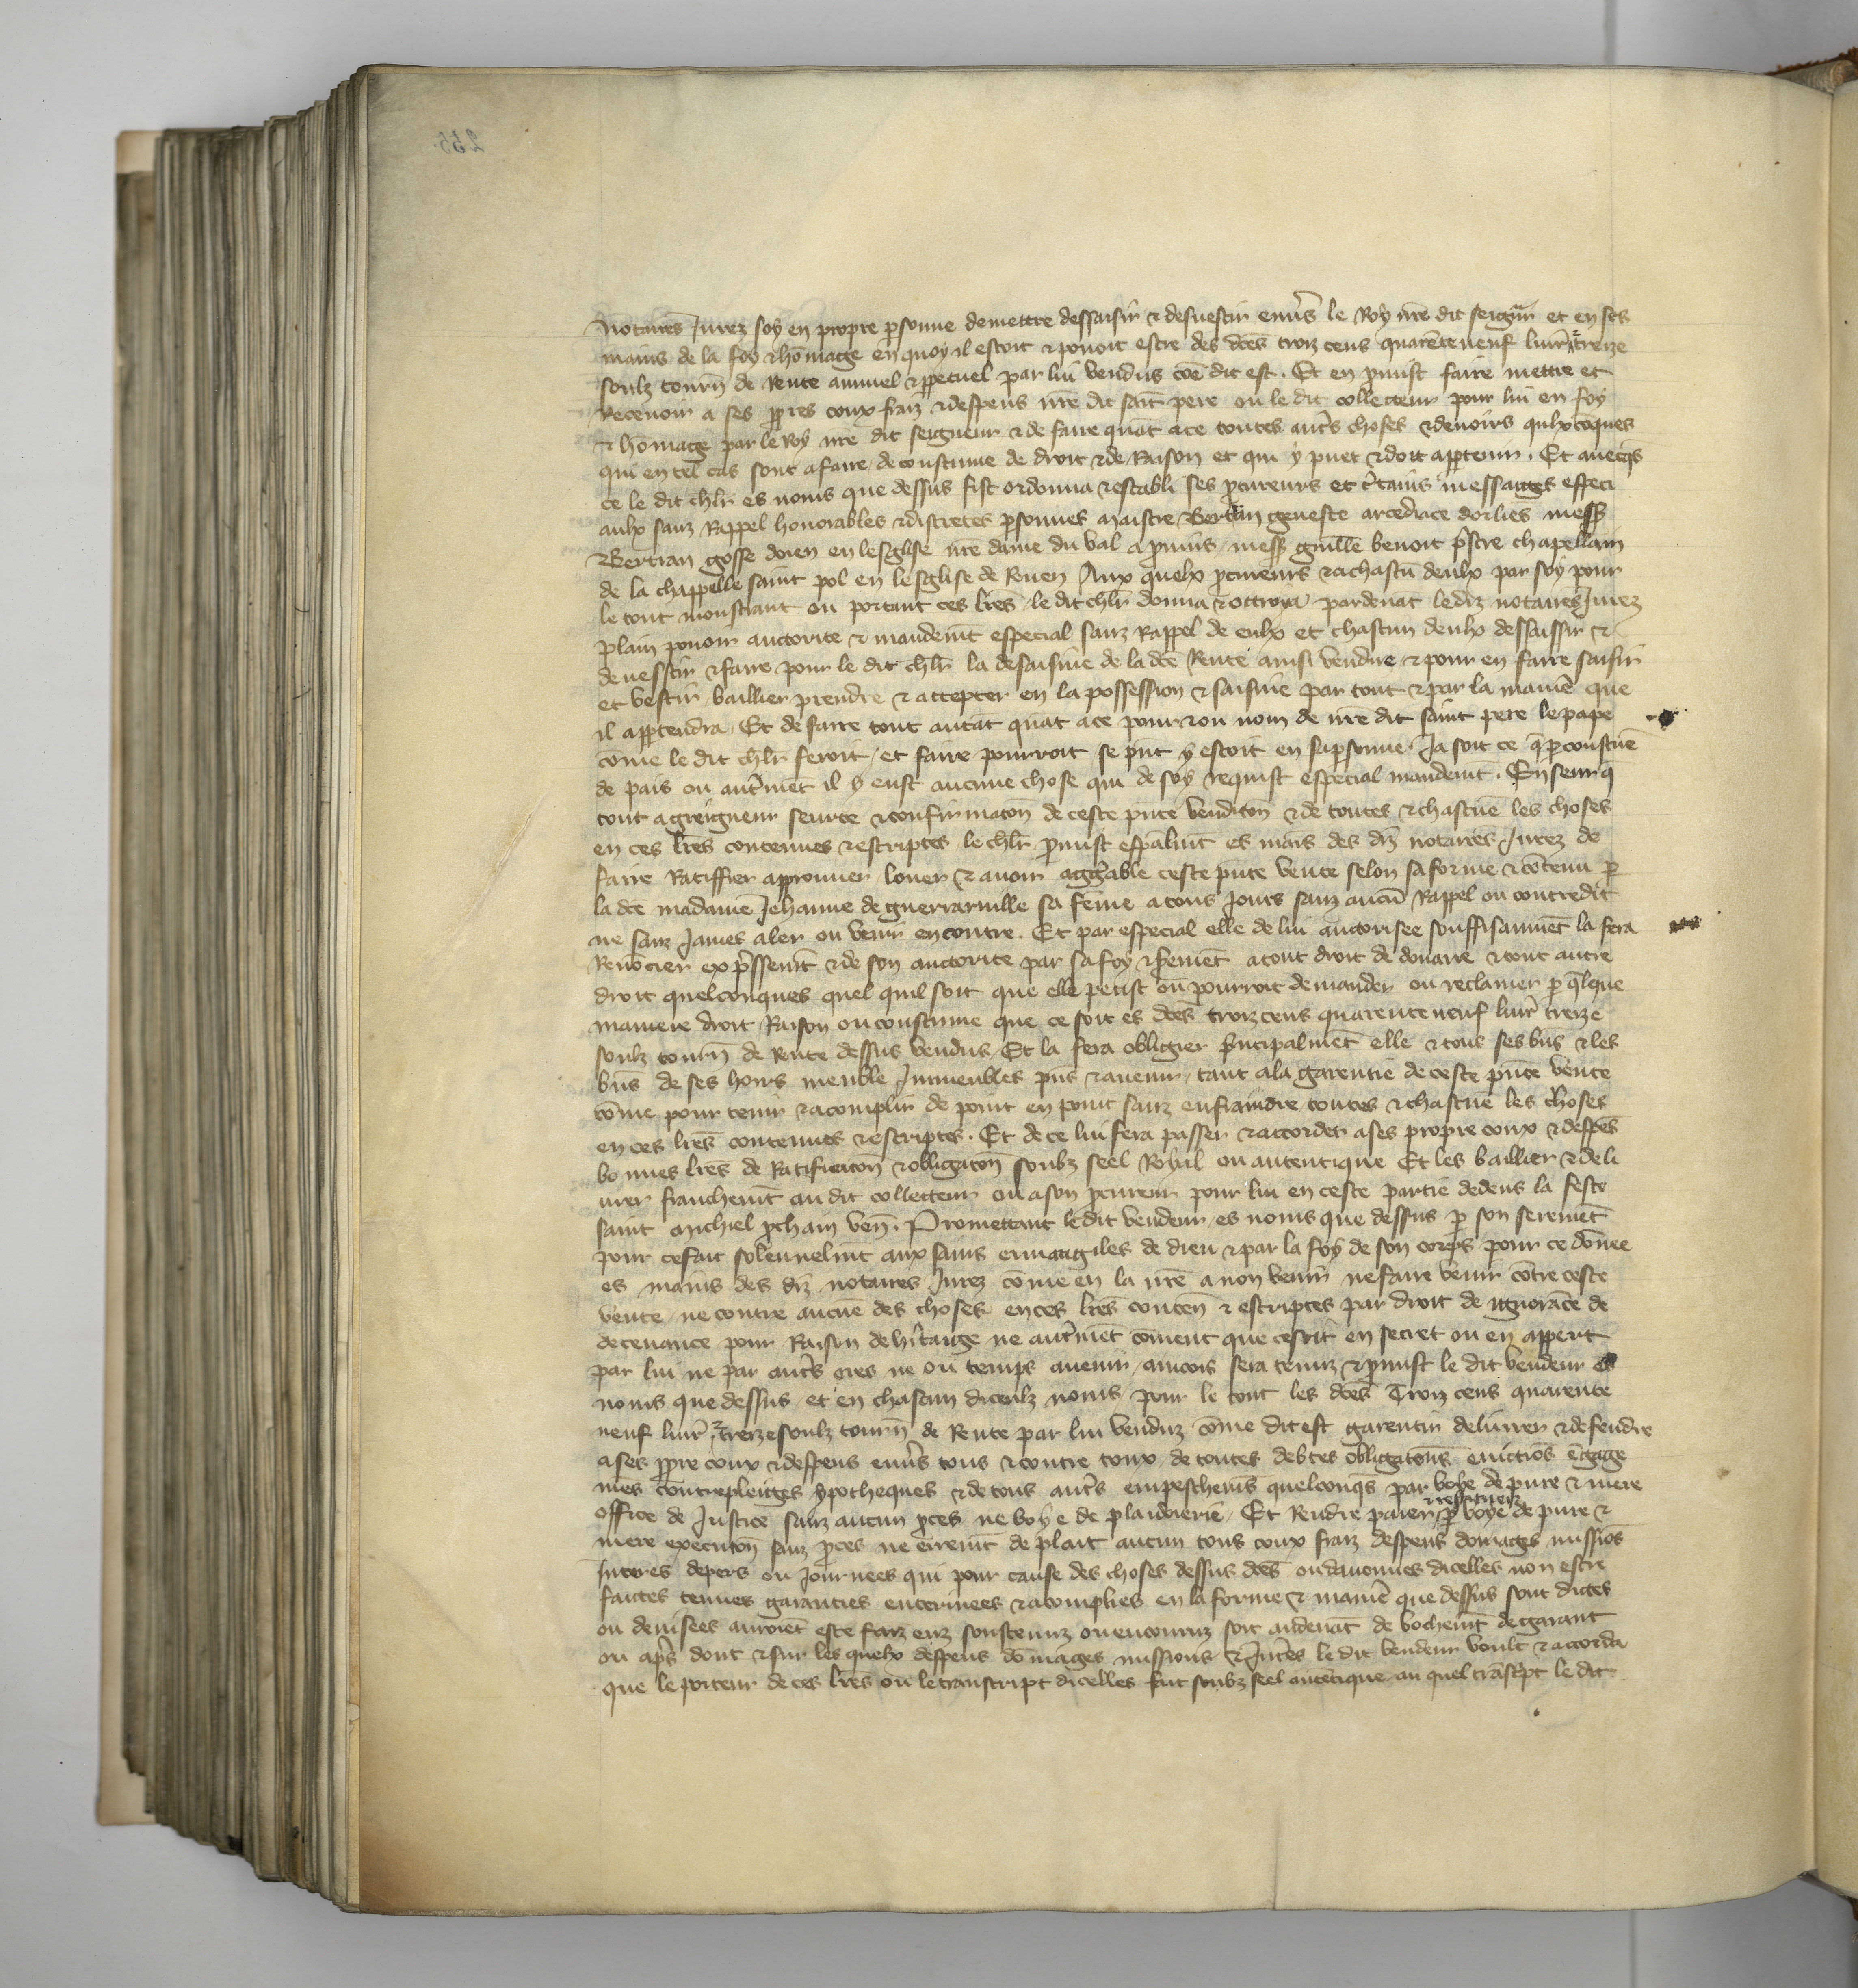 notaires Jurez soy en propre psonne demettre dessaisir & desuestir enũs le Roy nr̃e dit seignr̃ et en ses
mains de la foy & hõmage en quoy il estoit & pouoit estre des dc̃es troiz cens quarẽteneuf liur̃ & treize
soulz tourñ de Rente annuel & ppetuel par lui vendus cõe dit est. Et en pmist faire mettre et
Receuoir a ses ppres coux fraiz & despens nr̃e dit sait pere ou le dit collecteur pour lui en foy
& hõmage par le Roy nr̃e dit seigneur & de faire quãt ace toutes autr̃s choses & deuoirs quelxcõques
qui en tel cas sont a faire de coustume de droit & de Raison et qui y puet & doit apptenir. Et auecqs
ce le dit chlr̃ es noms que dessus fist ordonna & establi ses pcureurs et c̃tains messaiges especi
aulx sanz Rappel honorables & discretes psonnes maistre Bertran geneste arcediace dorlies mess
Bertran gosse doien en lesglise nr̃e dame du val a pruuis mess guill̃e benoit pr̃stre chapellain
de la chappelle saint pol en lesglise de Rouen Aux quelx pcureurs & a chascũ deulx par soy pour
le tout monstrant ou portant ces lr̃es le dit chlr̃ donna & ottroya pardeuãt lesdiz notaires Jurez
plain pouoir auctorite & mandemt̃ especial sanz Rappel de eulx et chascun deulx dessaissir &
deuesstir & faire pour le dit chlr̃ la desaisine de la dc̃e Rente ainsi vendue & pour en faire saisir
et vestir baillier prendre & accepter en la possession & saisine par tout & par la manier̃ que
il apptendra Et de faire tout autãt quãt ace pour & ou nom de nr̃e dit saint pere le pape
cõme le dit chlr̃ feroit et faire pourroit se pñt y estoit en sa psonne Ja soit ce q̃ p coustũe
de pais ou autr̃mẽt il y eust aucune chose qui de soy requist especial mandemt̃. Enseurq̃
tout a greigneur seurte & confirmacoñ de ceste pñte vendicoñ & de toutes & chascũe les choses
en ces lr̃es contenues & escriptes le chlr̃ pmist espãlmt̃ es maĩs des dĩz notaires Jurez de
faire Ratiffier approuuer louer & auoir aggreable ceste pñte vente selon sa forme & cõtenu p
la dc̃e madame Jehanne de guerraruille sa fẽme a tous Jours sanz aucũ Rappel ou contredit
ne sanz James aler ou venir encontre. Et par especial elle de lui auctorisee souffisanmẽt la fera
Renõcier expr̃ssemt̃ & de son auctorite par sa foy & sremẽt a tout droit de douaire & tout autre
droit quelconques quel quil soit que elle petist ou pourroit demander ou reclamer p q̃lque
maniere droit Raison ou coustume que ce soit es dc̃es troizcens quarente neuf liur̃ treize
soulz tourñ de Rente dessus vendus Et la fera obligier prĩcipalmẽt elle & tous ses biñs & les
biñs de ses hoirs meuble Jnmeubles pñs & auenir tant a la garentie de ceste pñte vente
cõme pour tenir & acomplir de point en point sanz enfraindre toutes & chascũe les choses
en ces lr̃es contenues & escriptes. Et de ce lui fera passer & accorder a ses propre coux & despẽs
bonnes lr̃es de Ratificacoñ & obligacoñ soubz seel Royal ou autentique Et les baillier & deli
urer franchemt̃ au dit collecteur ou a son pcureur pour lui en ceste partie dedens la feste
saint michiel pchain veñ. Promettant le dit vendeur es noms que dessus p son seremẽt
pour ce fait solennelmt̃ aux sains euuangiles de dieu & par la foy de son corps pour ce dõnee
es mains des dĩz notaires Jurez cõme en la nr̃e a non venir ne faire venir cõtre ceste
vente ne contre aucũe des choses en ces lr̃es conteñ & escriptes par droit de ignorãce de
deceuance pour Raison de hr̃itaige ne autr̃mẽt cõment que ce soit en secret ou en appert
par lui ne par autr̃s ores ne ou temps auenir aincois sera tenuz & pmist le dit vendeur es
noms que dessus et en chascun diceulz noms pour le tout les dc̃es Troiz cens quarente
neuf liur̃ & treze soulz tourñ de Rente par lui venduz cõme dit est garentir deliurer & defendre
a ses ppre coux & despens enũs tous & contre toux de toutes debtes obligacõns euictiõs ẽgage
mẽs contrepleitges ypotheques & de tous autr̃s empeschemẽs quelconqs par voye de pure & mere
office de Justice sanz aucun pces ne voye de plaidoierie Et Rendre paier & restituer p voye de pure &
mere execucoñ sanz pces ne erremt̃ de plait aucun tous coux fraiz despens domages missiõs
Jnteres depers ou Journees qui pour cause des choses dessus dc̃es ou daucunes dicelles non estre
faictes tenues garanties enterinees & acomplies en la forme & manier̃ que dessus sont dictes
ou deuisees auroiẽt este faiz euz soustenuz ou encouruz soit audeuãt de vochemt̃ de garant
ou apr̃s dont & sur les quelx despens dõmages missions & Jnter̃es le dit vendeur voult & accorda
que le porteur de ces lr̃es ou le transcript dicelles fait soubz seel autẽtique au quel trãscr̃pt le dit